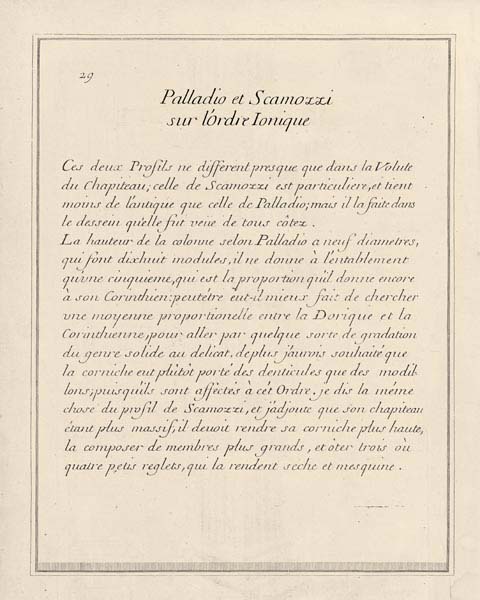 29
Palladio et Scamozzi
sur l'ordre Ionique
Ces deux Profils ne différent presque que dans la Volute
du Chapiteau; celle de Scamozzi est particuliere, et tient
moins de l'antique que celle de Palladio; mais il la faite dans
le dessein qu'elle fut veüe de tous côtez.
La hauteur de la colonne selon Palladio a neuf diametres,
qui font dixhuit modules, il ne donne à l'entablement
qu'vne cinquieme, qui est la proportion qu'il donne encore
à son Corinthien: peutétre eut-il mieux fait de chercher
vne moyenne proportionelle entre la Dorique et la
Corinthienne, pour aller par quelque sorte de gradation
du genre solide au délicat, deplus j'aurois souhaité que
la corniche eut plûtôt porté des denticules que des modil-
lons; puisqu'ils sont affectés à cét Ordre, je dis la méme
chose du profil de Scamozzi, et j'adjoute que son chapiteau
étant plus massif, il devoit rendre sa corniche plus haute,
la composer de membres plus grands, et ôter trois où
quatre petis reglets, qui la rendent seche et mesquine.